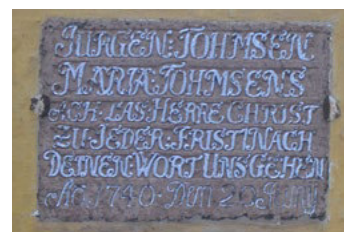 JURGEN: TOHMSEN
MARIA TOHMSENS
ACH · LAS HERRE CHRIST
ZU · JEDER · FRIST NACH
DEINEN · WORT UNS GEHEN
Ao · 1740 · Den 20 Juny